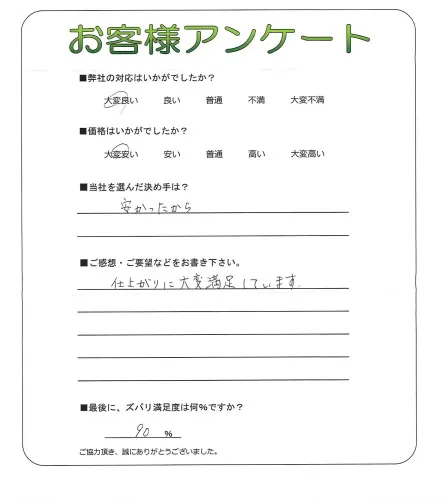 お客様アンケート
■弊社の対応はいかがでしたか？
大変良い 良い 普通 不満 大変不満
■価格はいかがでしたか？
大変安い 安い 普通 高い 大変高い
■当社を選んだ決め手は？
安かったから
■ご感想・ご要望などをお書き下さい。
仕上がりに大変満足しています。
■最後に、ズバリ満足度は何%ですか？
90 %
ご協力頂き、誠にありがとうございました。